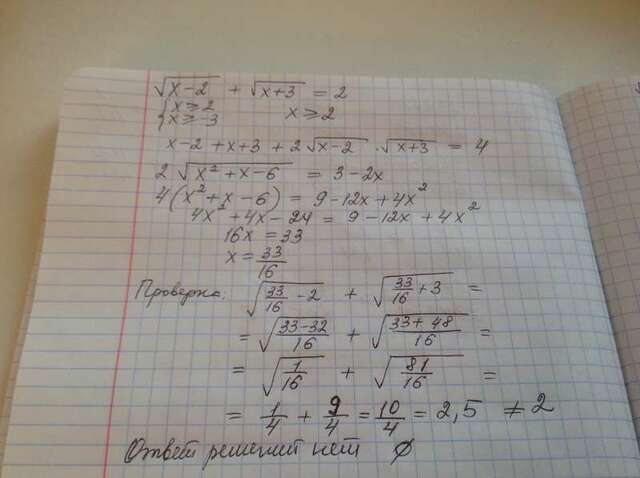 √(x-2) + √(x+3) = 2
{x ≥ 2
{x ≥ -3 x ≥ 2
x-2 + x+3 + 2√(x-2) · √(x+3) = 4
2√(x²+x-6) = 3-2x
4(x²+x-6) = 9-12x+4x²
4x²+4x-24 = 9-12x+4x²
16x = 33
x = 33/16
Проверка: √(33/16 - 2) + √(33/16 + 3) =
= √((33-32)/16) + √((33+48)/16) =
= √(1/16) + √(81/16) =
= 1/4 + 9/4 = 10/4 = 2,5 ≠ 2
Ответ решений нет ∅